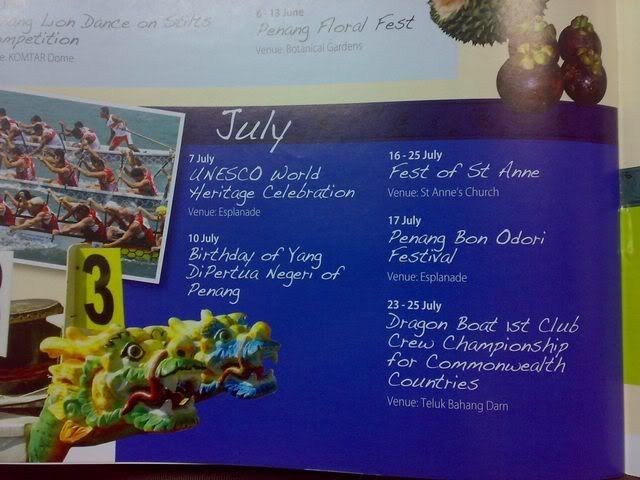 Lion Dance on Stilts
Competition
KOMTAR Dome
6 - 13 June
Penang Floral Fest
Venue: Botanical Gardens
July
7 July
UNESCO World
Heritage Celebration
Venue: Esplanade
10 July
Birthday of Yang
DiPertua Negeri of
Penang
16 - 25 July
Fest of St Anne
Venue: St Anne's Church
17 July
Penang Bon Odori
Festival
Venue: Esplanade
23 - 25 July
Dragon Boat 1st Club
Crew Championship
for Commonwealth
Countries
Venue: Teluk Bahang Dam
3